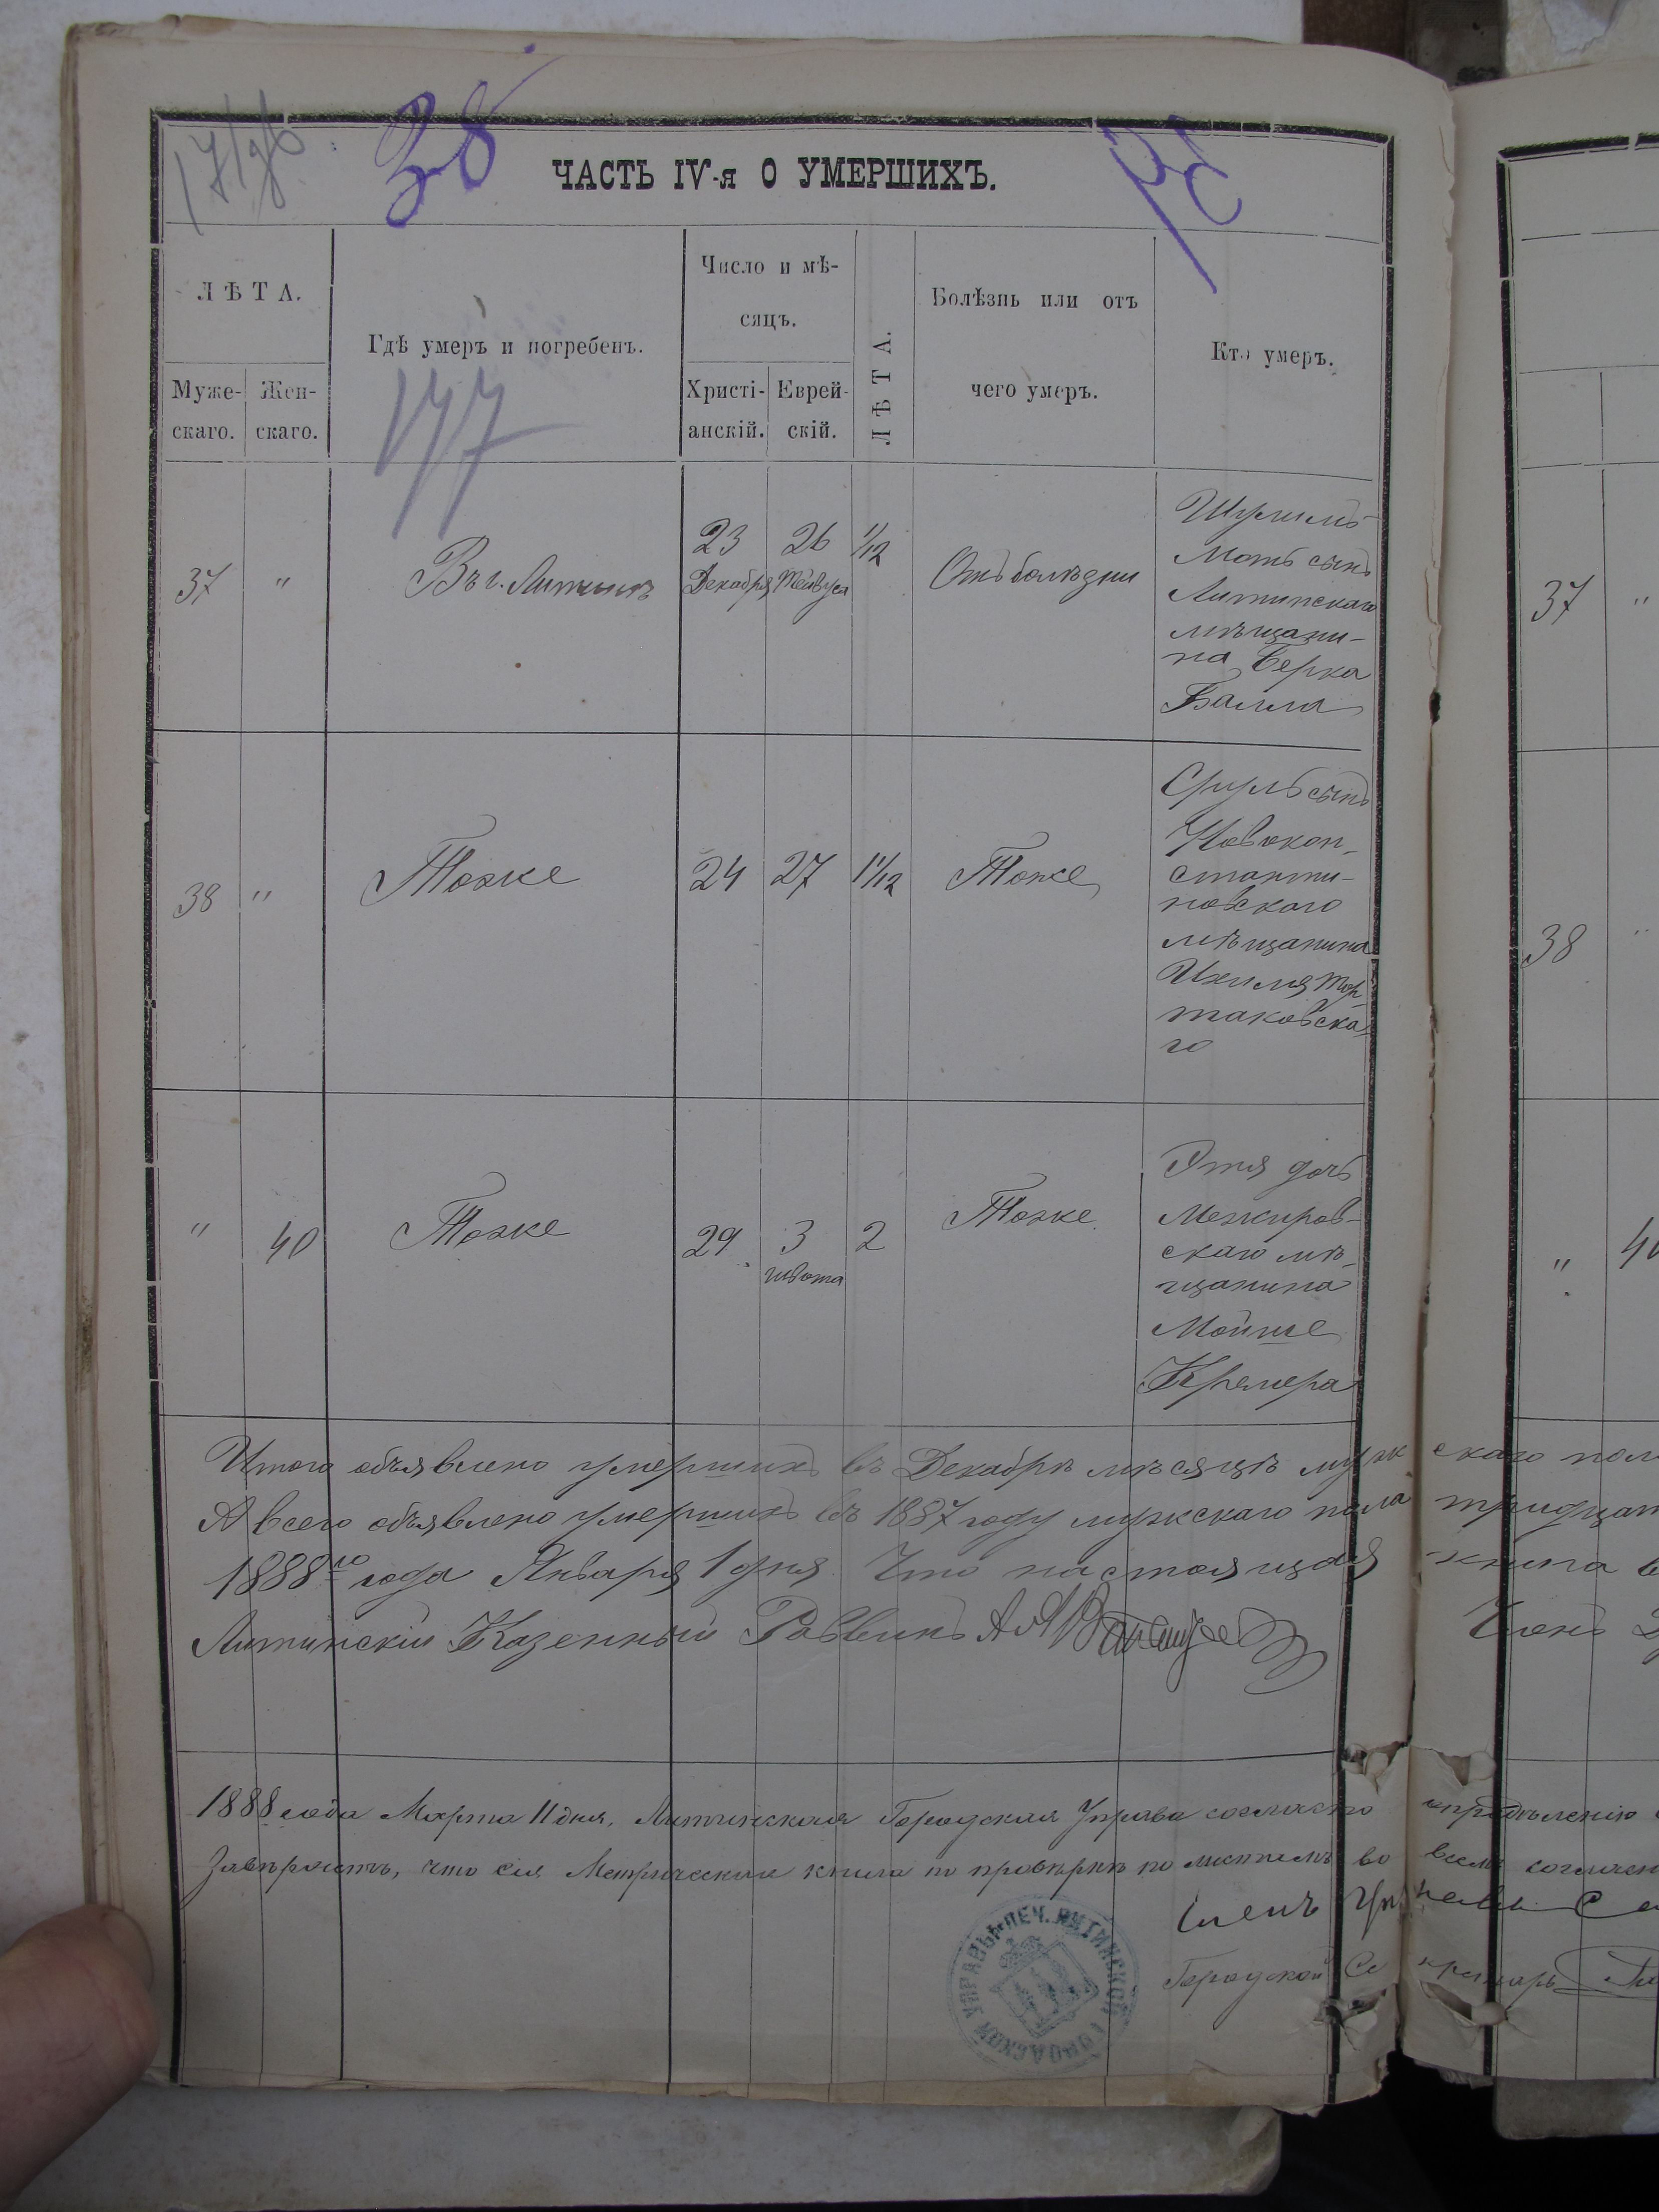 38
ЧАСТЬ IV-я О УМЕРШИХЪ.
ЛѢТА.
Муже-
скаго.
Жен-
скаго.
Гдѣ умеръ и погребенъ.
Число и мѣ-
сяцъ.
Христі-
анскій.
Еврей-
скій.
ЛѢТА.
Болѣзнь или отъ
чего умеръ.
Кто умеръ.
37
"
Въ г. Литинѣ
23
Декабря
26
Тейвуса
1/12
Отъ болѣзни
Шулимъ
Моть сынъ
Литинскаго
мѣщани-
на Берка
Балла
38
"
Тоже
24
27
11/12
Тоже
Сруль сынъ
Новокон-
станти-
новскаго
мѣщанина
Ихиля Тор-
таковска-
го
"
40
Тоже
29
3
швота
2
Тоже
Этя дочь
Межиров-
скаго мѣ-
щанина
Мойше
Кремера
Итого объявлено умершихъ въ Декабрѣ мѣсяцѣ мужскаго
А всего объявлено умершихъ въ 1887 году мужскаго пола
1888го года Января 1 дня Что настоящая книга
Литинскій Казенный Раввинъ
Членъ
1888 года Марта 11 дня, Литинская Городская Управа согласно опредѣленію
завѣряетъ, что сія Метрическая книга по провѣркѣ во всемъ
Членъ Управы
Городской Секретарь
ПЕЧ. ЛИТИНСКОЙ ГОРОДСКОЙ УПРАВЫ
37
"
38
"
"
40